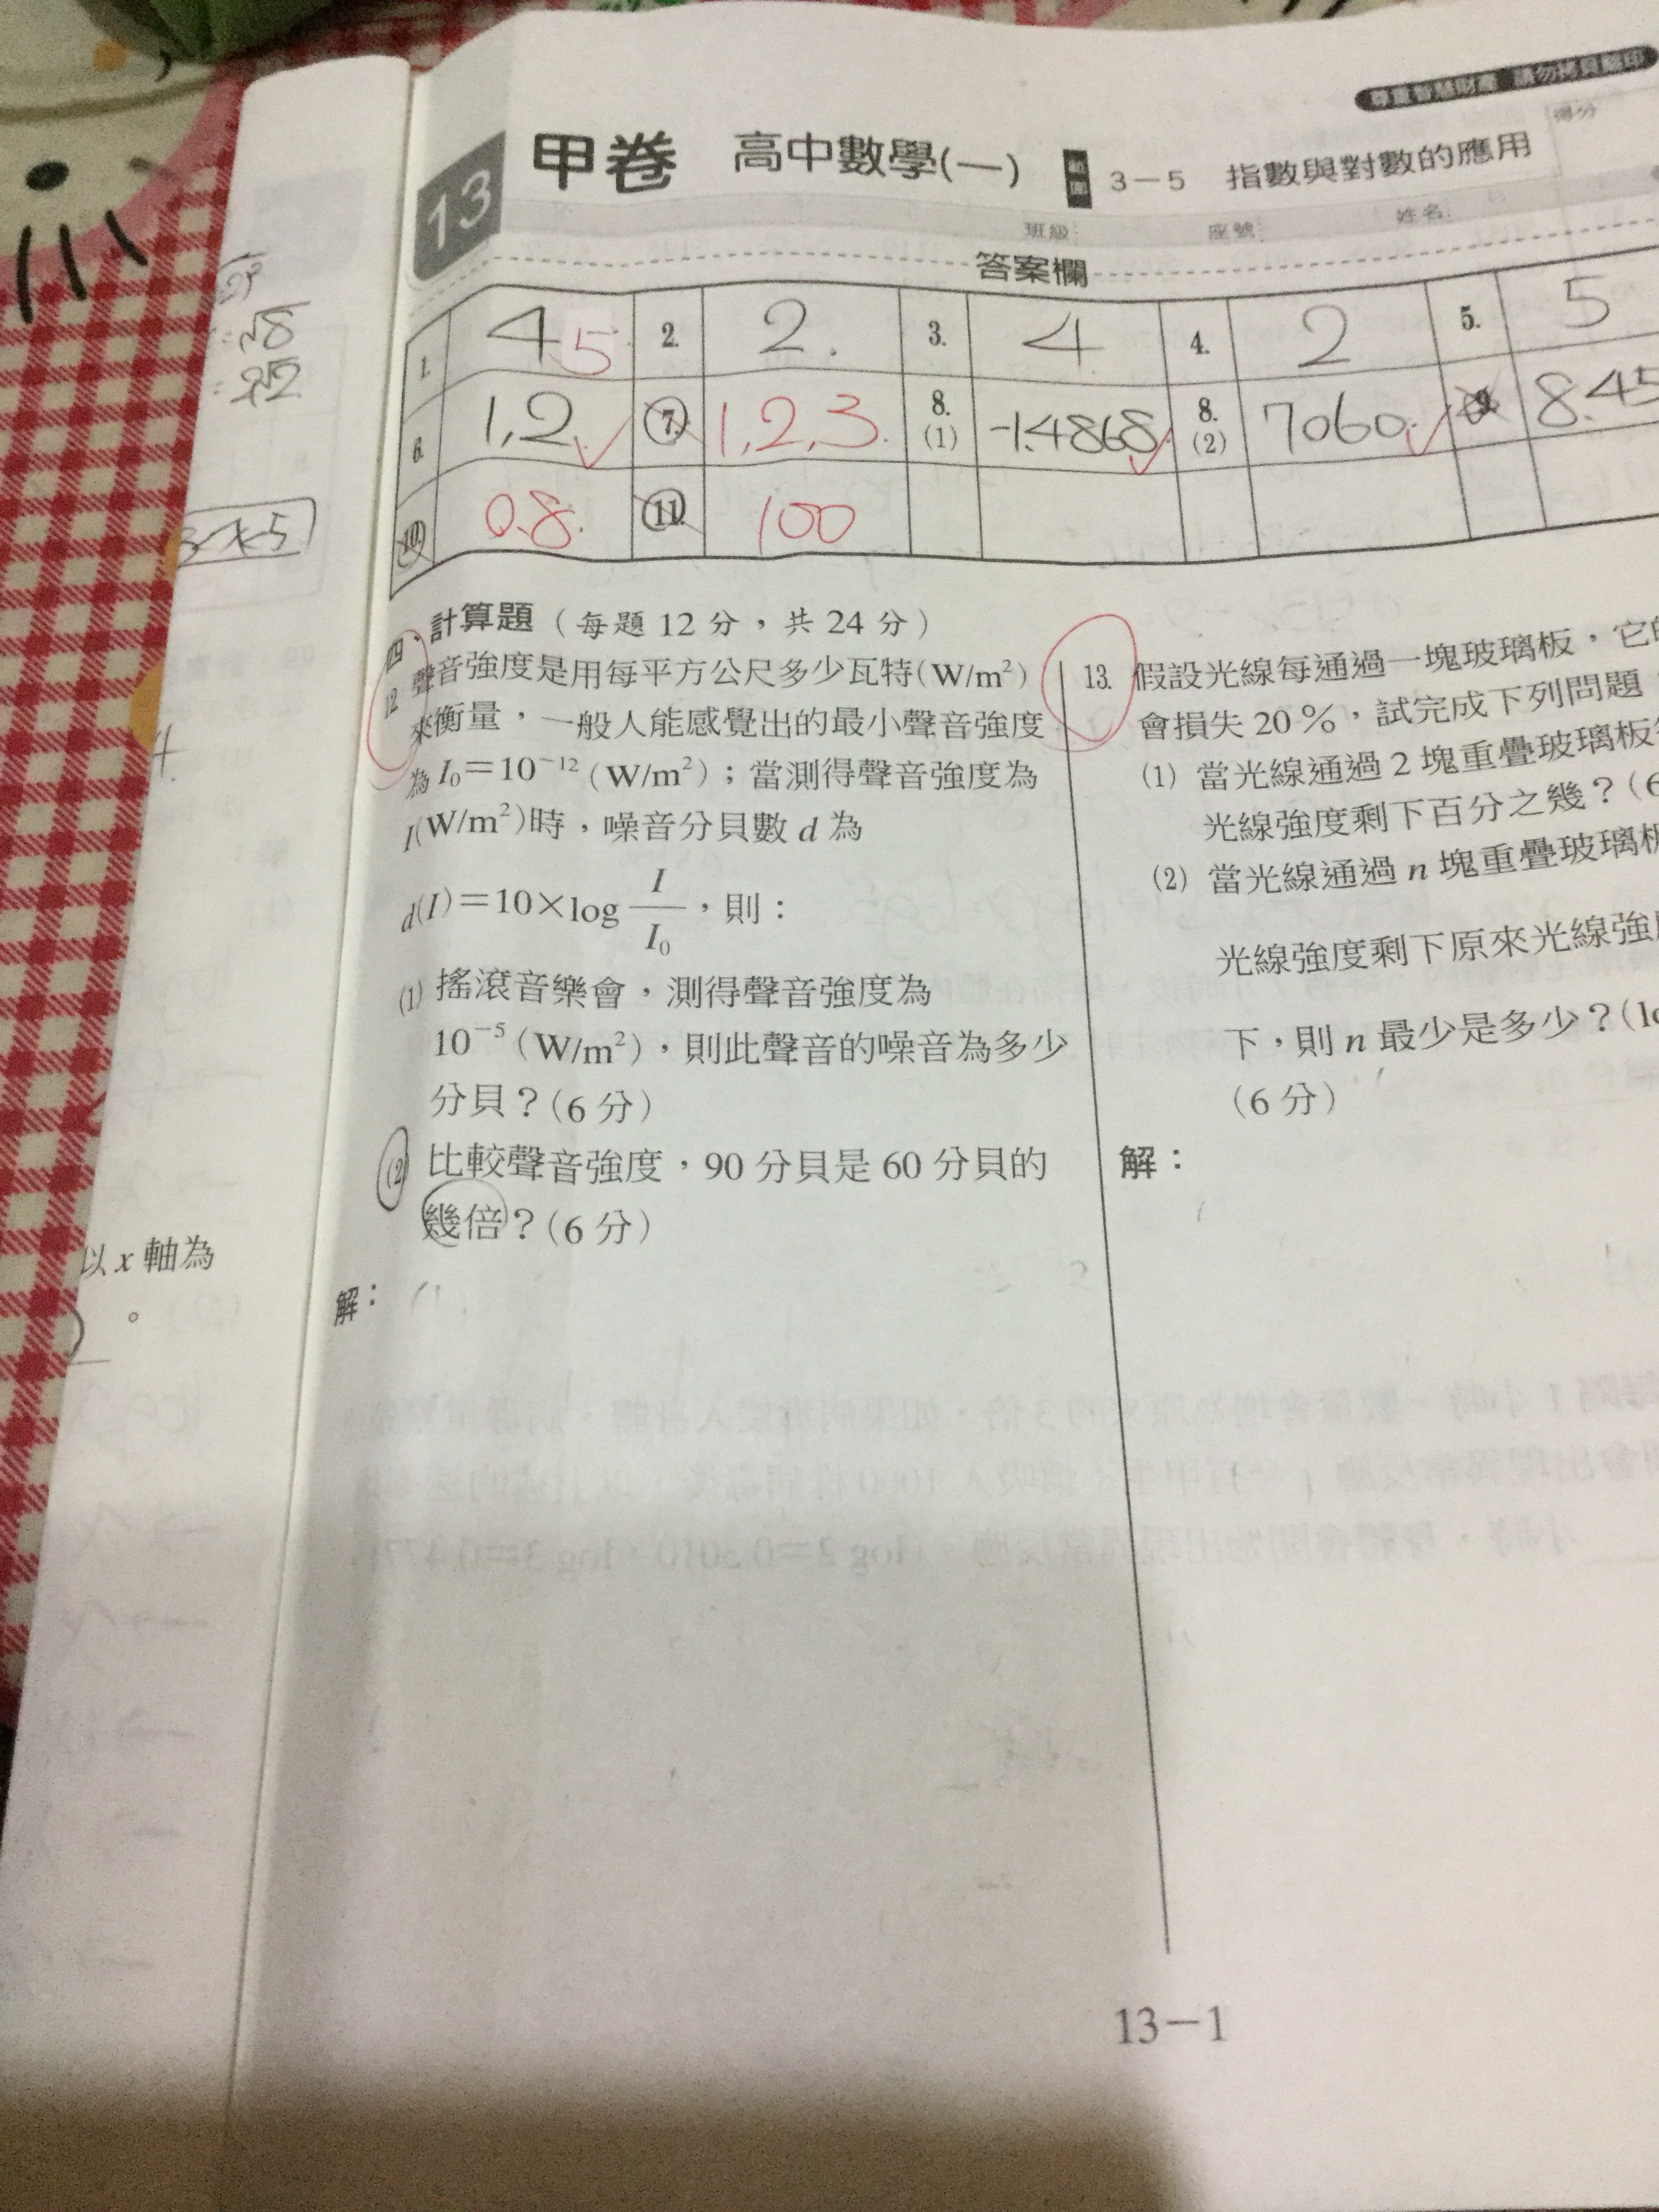 尊重智慧財產 請勿拷貝翻印
得分
13 甲卷 高中數學(一) 範圍 3-5 指數與對數的應用
班級: 座號: 姓名:
答案欄
1. 4 5 2. 2. 3. 4 4. 2 5. 5
6. 1,2 7. 1,2,3. 8.(1) -1.4868 8.(2) 7060. 9. 8.45
10. 0.8. 11. 100
四、計算題(每題 12 分,共 24 分)
12. 聲音強度是用每平方公尺多少瓦特(W/m²)
來衡量,一般人能感覺出的最小聲音強度
為 I₀=10⁻¹²(W/m²);當測得聲音強度為
I(W/m²)時,噪音分貝數 d 為
d(I)=10×log I/I₀,則:
(1) 搖滾音樂會,測得聲音強度為
10⁻⁵(W/m²),則此聲音的噪音為多少
分貝?(6 分)
(2) 比較聲音強度,90 分貝是 60 分貝的
幾倍?(6 分)
解:
13. 假設光線每通過一塊玻璃板,它的
會損失 20%,試完成下列問題
(1) 當光線通過 2 塊重疊玻璃板
光線強度剩下百分之幾?(6
(2) 當光線通過 n 塊重疊玻璃板
光線強度剩下原來光線強度
下,則 n 最少是多少?(lo
(6 分)
解:
以 x 軸為
。
13-1